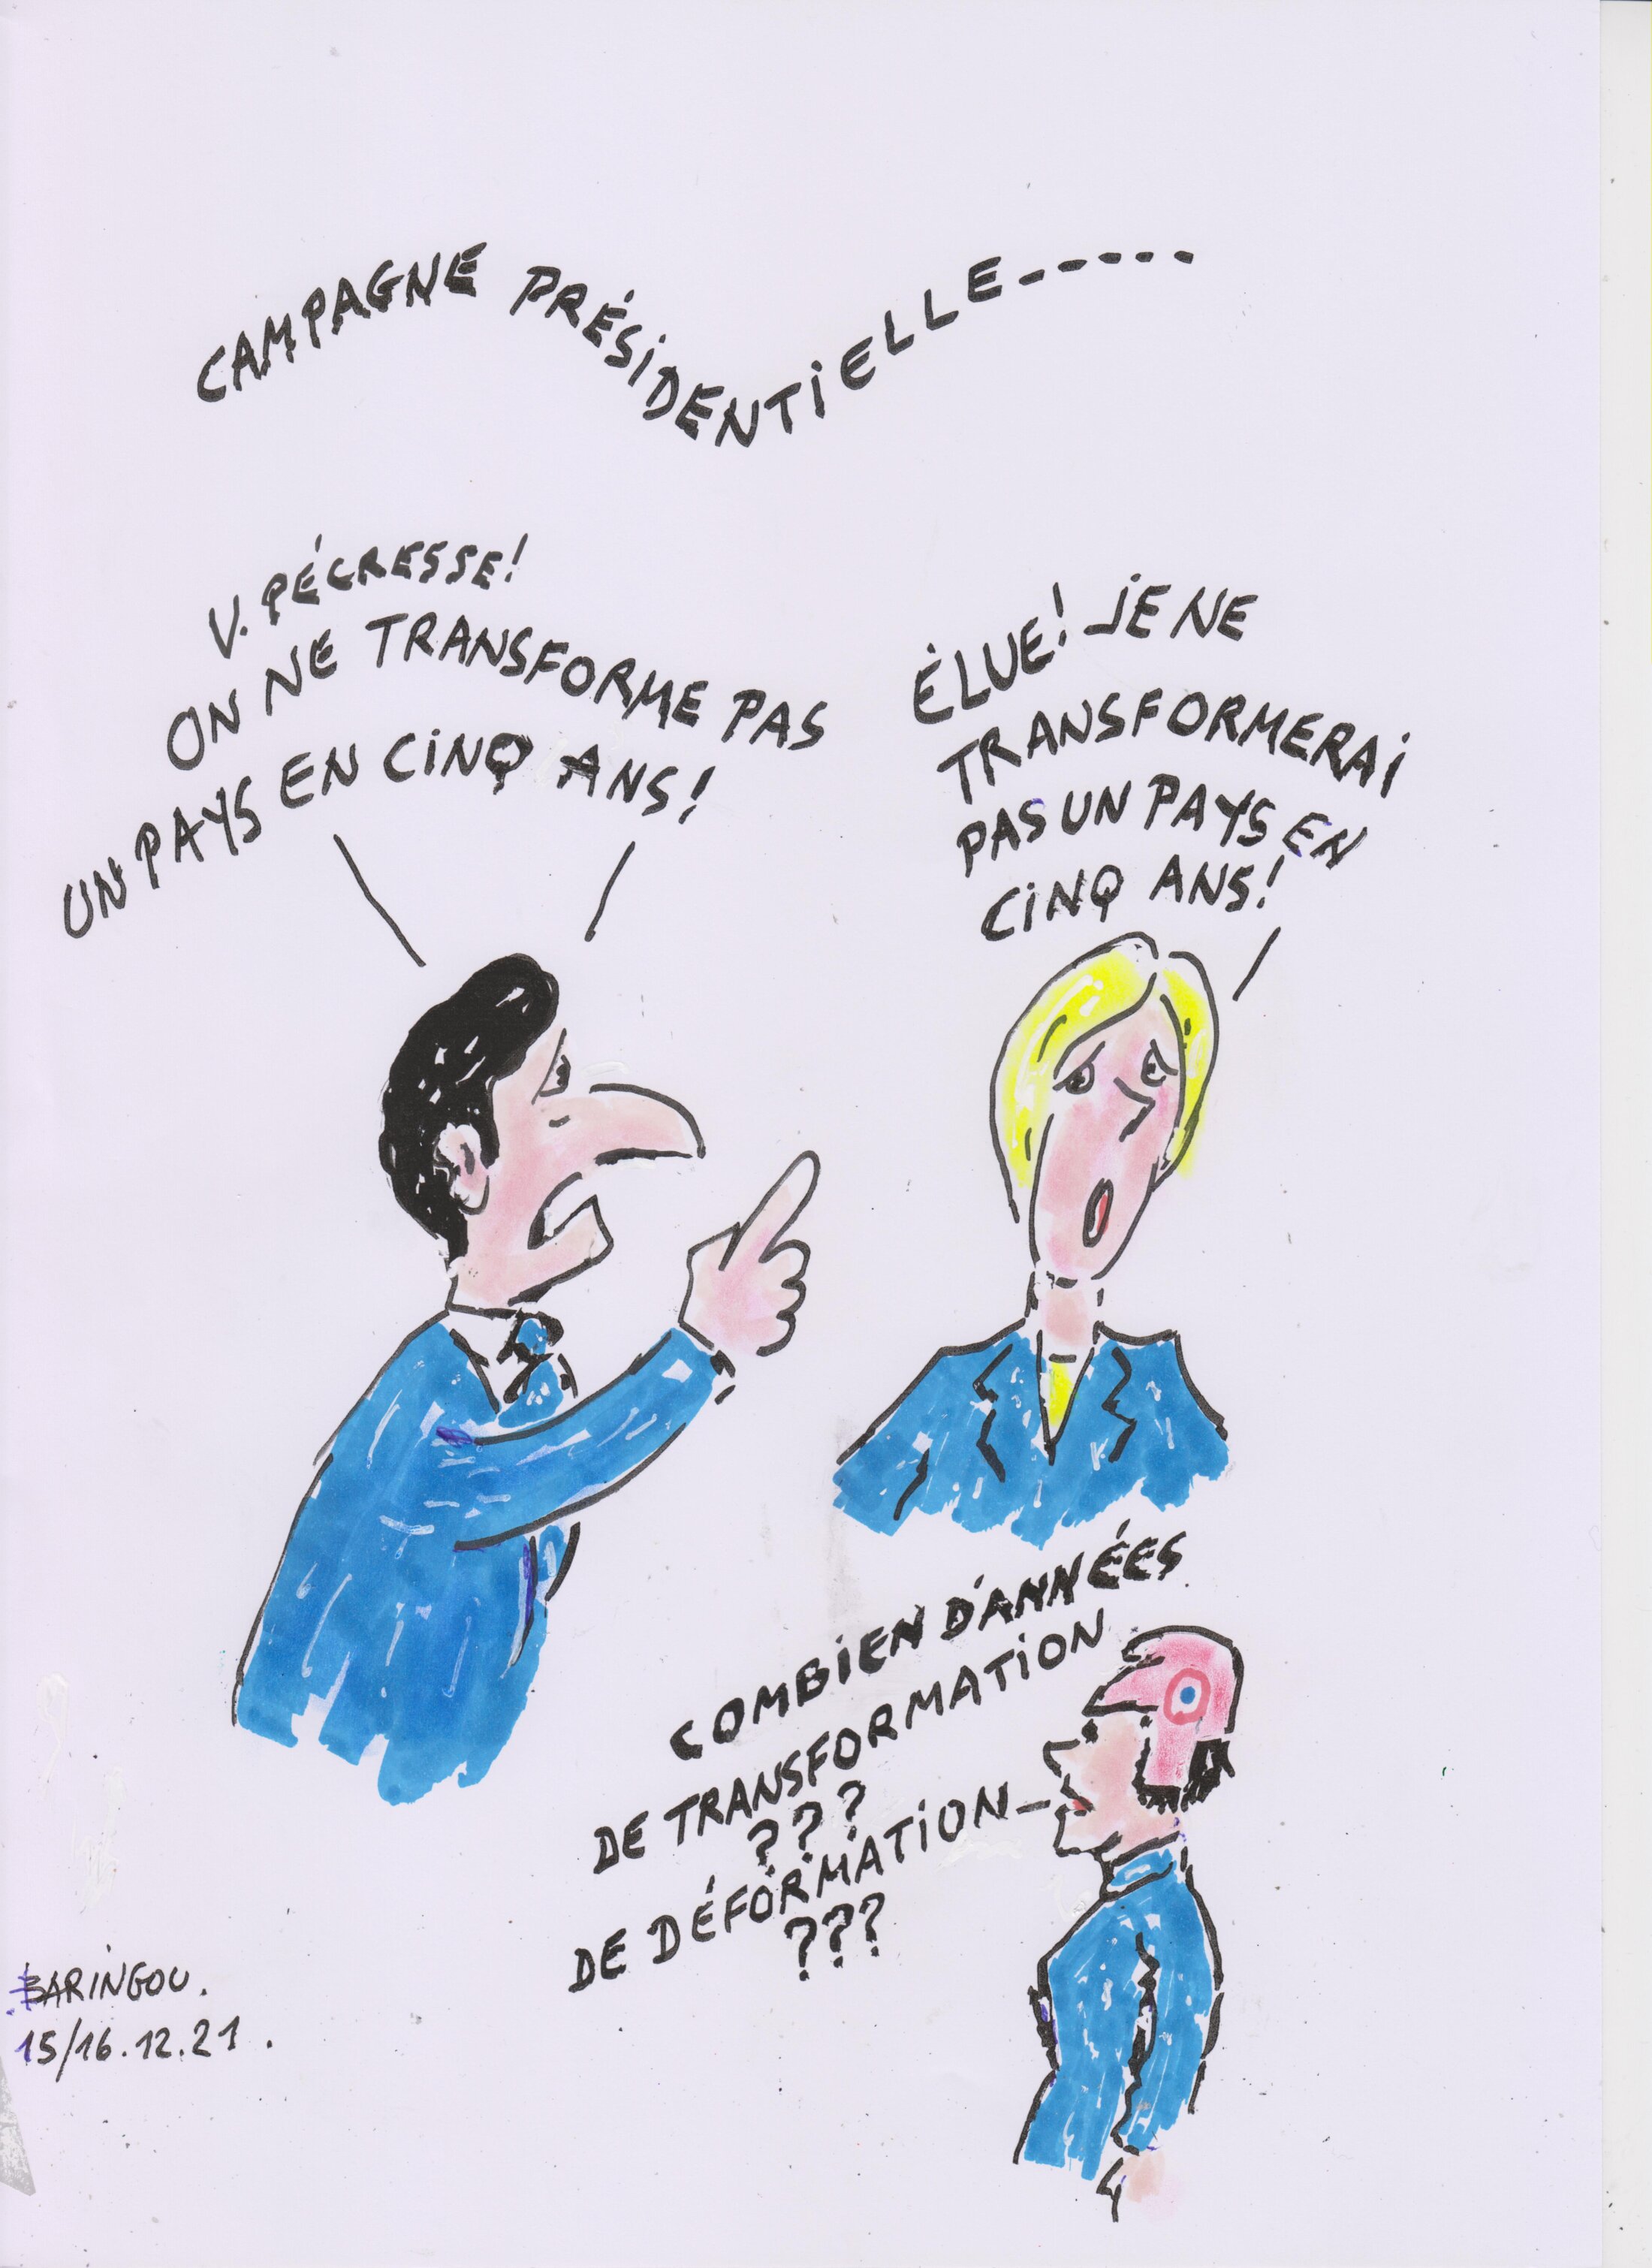 CAMPAGNE PRÉSIDENTIELLE-----
V. PÉCRESSE!
ON NE TRANSFORME PAS
UN PAYS EN CINQ ANS!
ÉLUE! JE NE
TRANSFORMERAI
PAS UN PAYS EN
CINQ ANS!
COMBIEN D'ANNÉES
DE TRANSFORMATION
???
DE DÉFORMATION-
???
BARINGOU.
15/16.12.21.